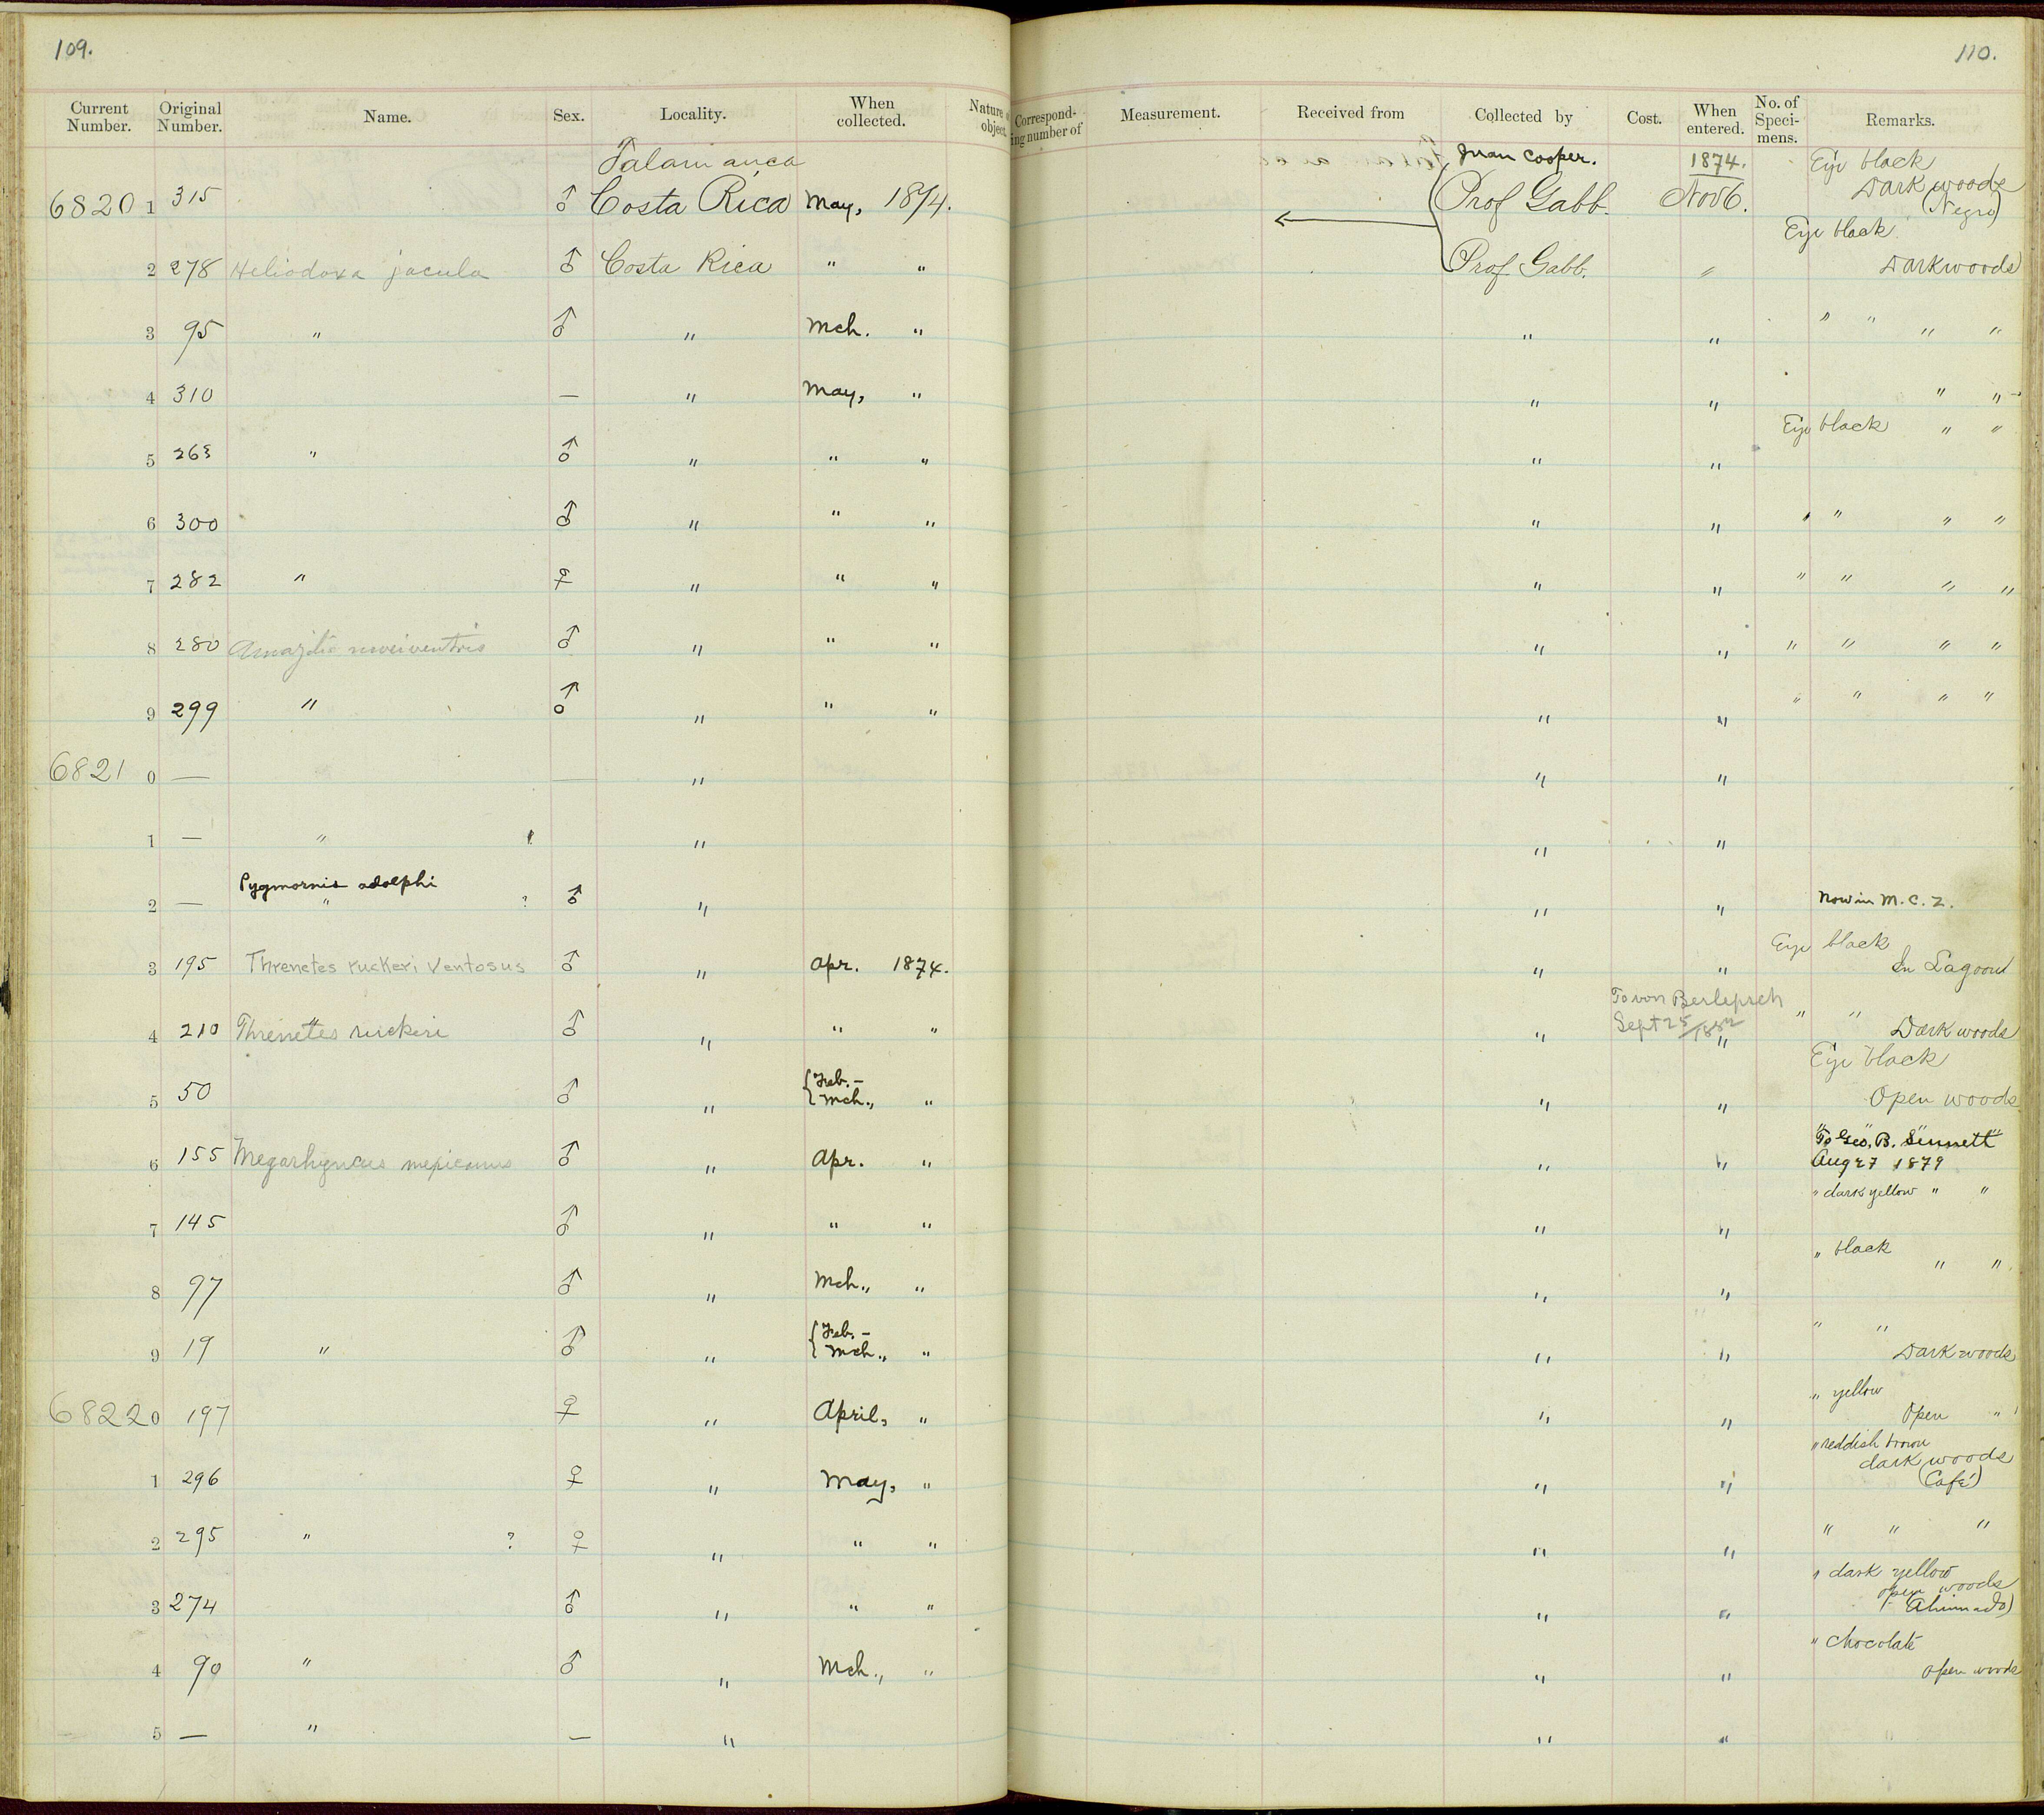 109.
110.
Current Number. Original Number. Name. Sex. Locality. When collected. Nature object. Correspond-ing number of Measurement. Received from Collected by Cost. When entered. No. of Speci-mens. Remarks.
Talamanca Juan Cooper. 1874. Eye black
6820 1 315 ♂ Costa Rica May, 1874. Prof Gabb. Nov 6. Dark woods
(Negro)
Eye black
2 278 Heliodoxa jacula ♂ Costa Rica " " Prof Gabb. " Dark woods
3 95 " ♂ " Mch. " " " " " " "
4 310 — " May, " " " " "
Eye black " "
5 263 " ♂ " " " " "
6 300 ♂ " " " " " " " " "
7 282 " ♀ " " " " " " " " "
8 280 Amazilia niveiventris ♂ " " " " " " " " "
9 299 " ♂ " " " " " " " " "
6821 0 — — " " "
1 — " " " "
Pygmornis adolphi
2 — " ? ♂ " " " Now in M. C. Z.
Eye black
3 195 Threnetes ruckeri ventosus ♂ " Apr. 1874. " " In Lagoon
To von Berlepsch
Sept 25/1882
4 210 Threnetes ruckeri ♂ " " " " " " " Dark woods
Eye black
5 50 ♂ " { Feb. – Mch., " " " Open woods
"To Geo. B. Sennett"
6 155 Megarhynchus mexicanus ♂ " Apr. " " " Aug 27 1879
" dark yellow " "
7 145 ♂ " " " " "
" black " "
8 97 ♂ " Mch., " " "
" "
9 19 " ♂ " { Feb. – Mch., " " " Dark woods
" yellow
6822 0 197 ♀ " April, " " " Open "
" reddish brown
dark woods
1 296 ♀ " May, " " " (Café)
2 295 " ? ♀ " " " " " " " "
" dark yellow
open woods
3 274 ♂ " " " " " (Ahumado)
" chocolate
4 90 " ♂ " Mch., " " " open woods
5 — " — " " "